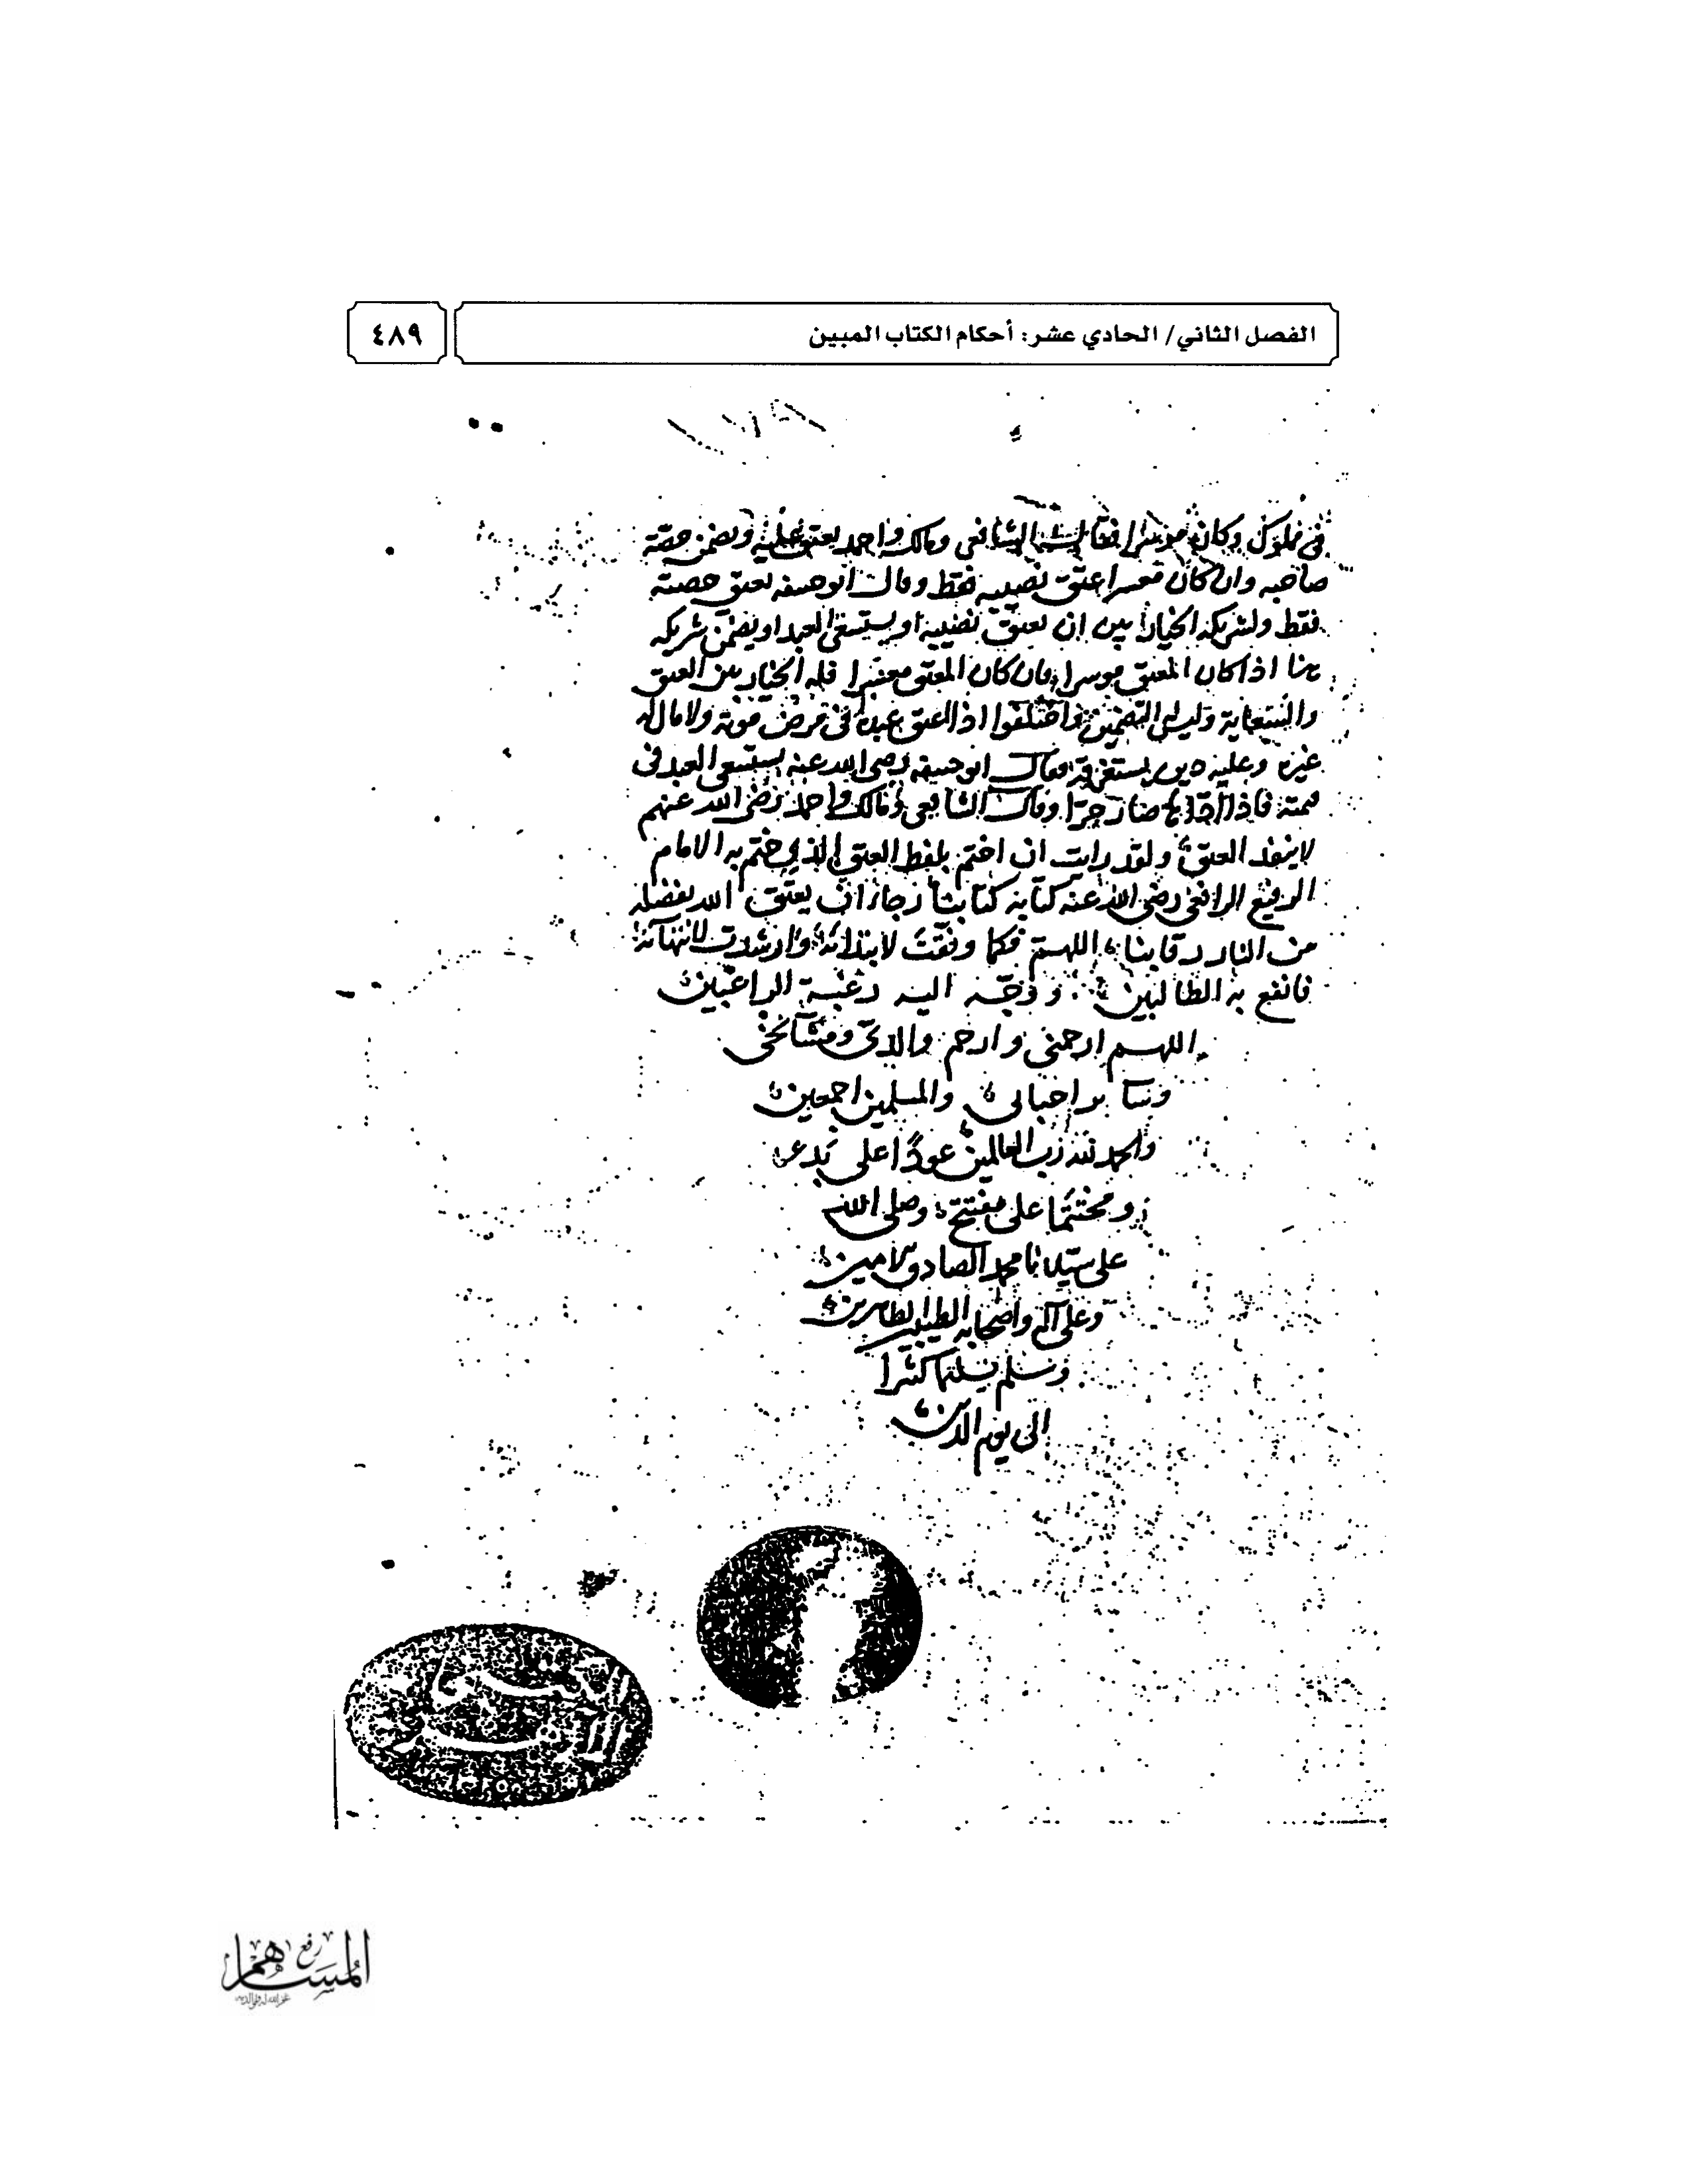 الفصل الثاني/ الحادي عشر: أحكام الكتاب المبين
٤٨٩
في مملوك وكان موسرا فقال الشافعي ومالك واحمد يعتق عليه ويضمن حصة
صاحبه وان كان معسرا عتق نصيبه فقط وقال ابو حنيفه يعتق حصته
فقط ولشريكه الخيار بين ان يعتق نصيبه او يستسعى العبد او يضمن شريكه
هذا اذا كان المعتق موسرا فان كان المعتق معسرا فله الخيار بين العتق
والسعاية وليس التضمين واختلفوا اذا اعتق عبده في مرض موته ولا مال له
غيره وعليه دين يستغرقه فقال ابو حنيفه رضي الله عنه يستسعى العبد في
قيمته فاذا اداها صار حرا وقال الشافعي ومالك واحمد رضي الله عنهم
لا ينفذ العتق ولقد رايت ان اختم بلفظ العتق الذي ختم به الامام
الرفيع الرافعي رضي الله عنه كتابه كتابنا رجاء ان يعتق الله بفضله
من النار رقابنا اللهم فكما وفقت لابتدائه وارشدت لانتهائه
فانفع به الطالبين ووجه اليه رغبة الراغبين
اللهم ارحمني وارحم والدي ومشائخي
وسائر احبابي والمسلمين اجمعين
والحمد لله رب العالمين عودا على بدء
ومختتما على مفتتح وصلى الله
على سيدنا محمد الصادق الامين
وعلى آله واصحابه الطيبين الطاهرين
وسلم تسليما كثيرا
الى يوم الدين
رفع
المساهم
غفر الله له ولوالديه